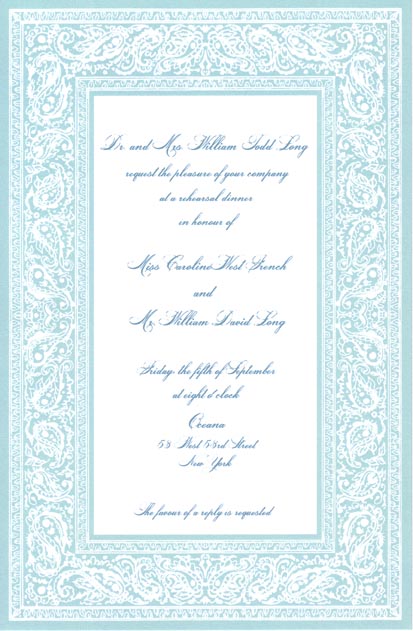 Dr. and Mrs. William Todd Long
request the pleasure of your company
at a rehearsal dinner
in honour of
Miss Caroline West French
and
Mr. William David Long
Friday, the fifth of September
at eight o'clock
Oceana
55 West 53rd Street
New York
The favour of a reply is requested